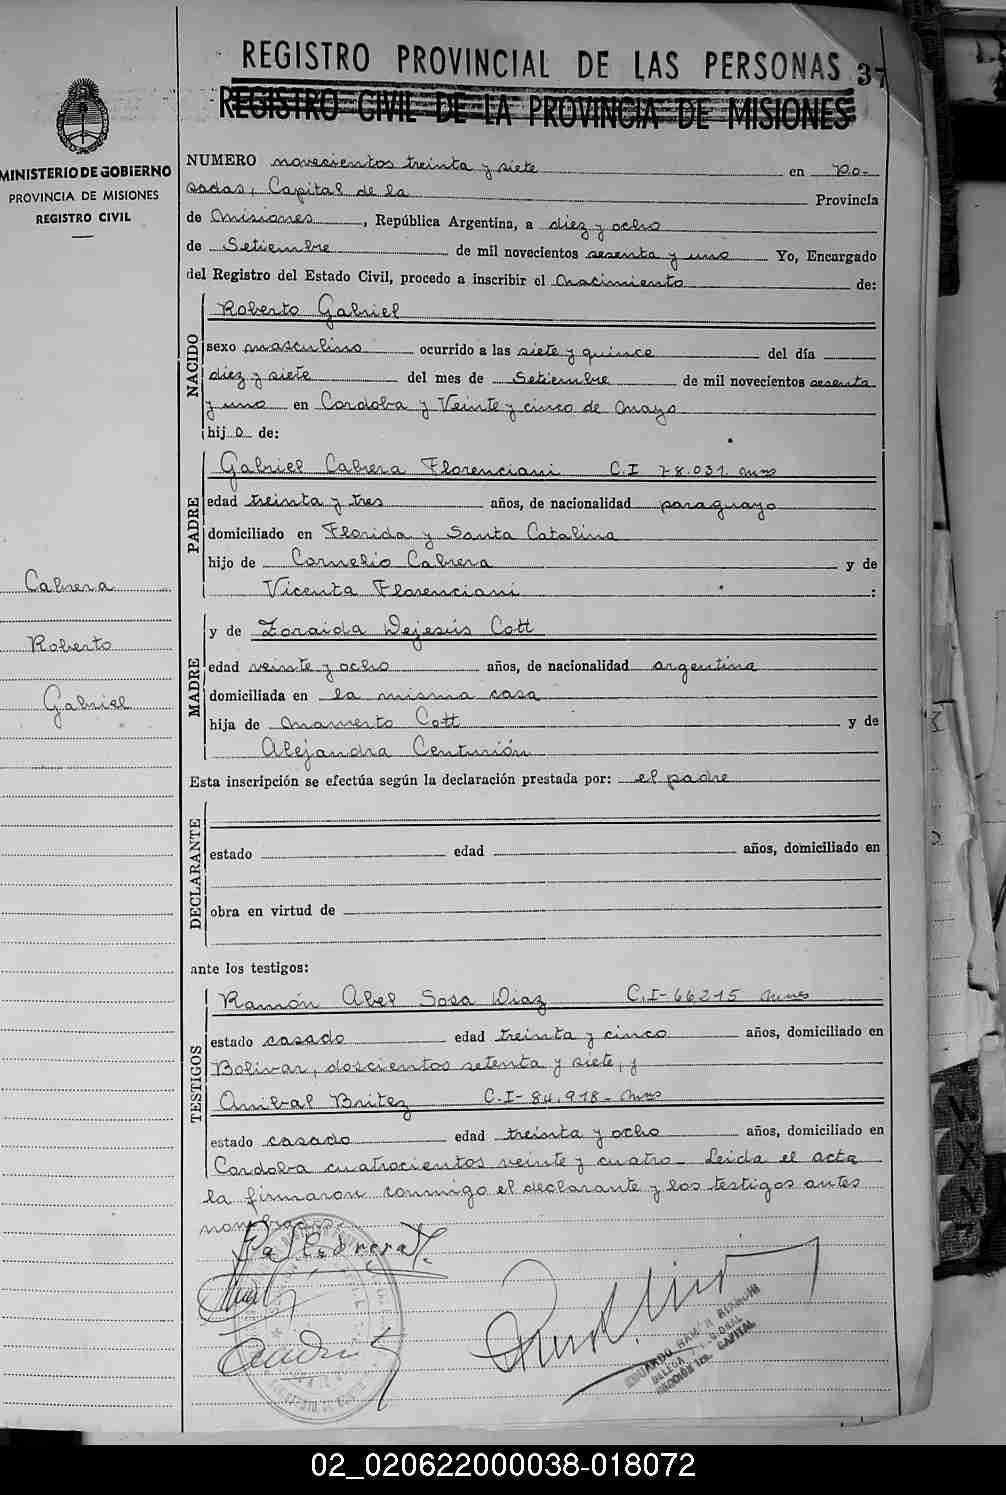 REGISTRO PROVINCIAL DE LAS PERSONAS
37
REGISTRO CIVIL DE LA PROVINCIA DE MISIONES
MINISTERIO DE GOBIERNO
PROVINCIA DE MISIONES
REGISTRO CIVIL
NUMERO novecientos treinta y siete en Po-
sadas, Capital de la Provincia
de Misiones, República Argentina, a diez y ocho
de Setiembre de mil novecientos sesenta y uno Yo, Encargado
del Registro del Estado Civil, procedo a inscribir el nacimiento de:
NACIDO
Roberto Gabriel
sexo masculino ocurrido a las siete y quince del día
diez y siete del mes de Setiembre de mil novecientos sesenta
y uno en Cordoba y Veinte y cinco de Mayo
hij o de:
PADRE
Gabriel Cabrera Florenciani C.I 78.031. Mnes
edad treinta y tres años, de nacionalidad paraguayo
domiciliado en Florida y Santa Catalina
hijo de Cornelio Cabrera y de
Vicenta Florenciani :
Cabrera
Roberto
Gabriel
MADRE
y de Zoraida Dejesús Cott
edad veinte y ocho años, de nacionalidad argentina
domiciliada en la misma casa
hija de Mamerto Cott y de
Alejandra Centurión
Esta inscripción se efectúa según la declaración prestada por: el padre
DECLARANTE
estado edad años, domiciliado en
obra en virtud de
ante los testigos:
TESTIGOS
Ramón Abel Sosa Diaz C.I-66215 Mnes
estado casado edad treinta y cinco años, domiciliado en
Bolivar, doscientos setenta y siete, y
Anibal Britez C.I-84.918- Mnes
estado casado edad treinta y ocho años, domiciliado en
Cordoba cuatrocientos veinte y cuatro- Leida el acta
la firmaron conmigo el declarante y los testigos antes
nombrados.
EDUARDO RAMÓN
CAPITAL
02_020622000038-018072